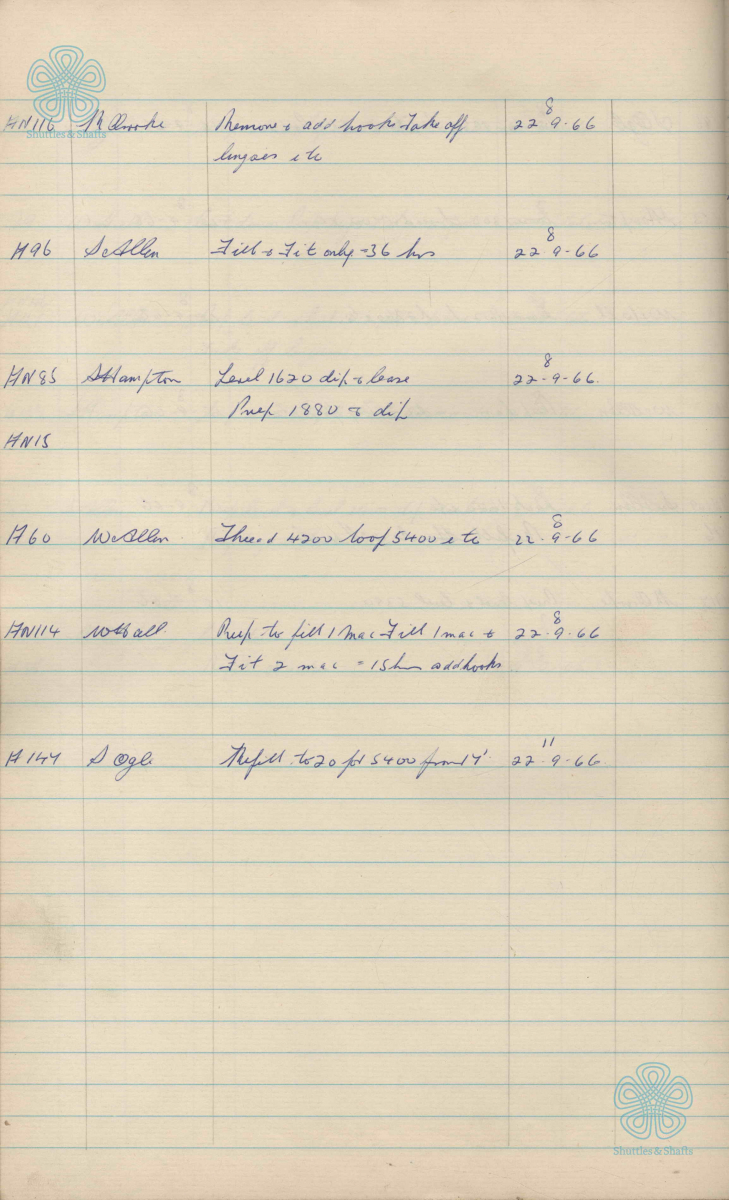 8
HN116 R Clarke Remove & add hooks Take off 22-9-66
Shuttles & Shafts
lingoes etc
8
H96 S Allen Fill & Fit only = 36 hrs 22 9-66
8
HN85 S Hampton Level 1620 dip & lease 22-9-66.
Prep 1880 & dip
HN15
8
H60 W Allen Thread 4200 loop 5400 etc 22-9-66
8
HN114 W Hall. Prep to fill 1 mac Fill 1 mac & 22-9-66
Fit 2 mac = 15 hrs add hooks
11
H147 S Ogle Refill to 20 for 5400 from 22-9-66
Shuttles & Shafts